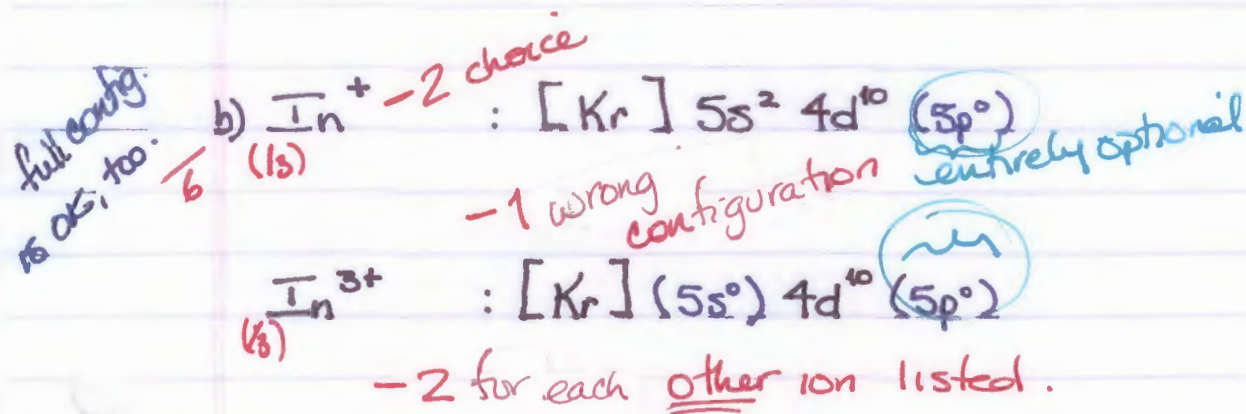 full config.
is OK, too.
/6
b) In⁺ -2 choice : [Kr] 5s² 4d¹⁰ (5p⁰)
(/3)
entirely optional
-1 wrong
configuration
In³⁺ : [Kr] (5s⁰) 4d¹⁰ (5p⁰)
(/3)
-2 for each other ion listed.